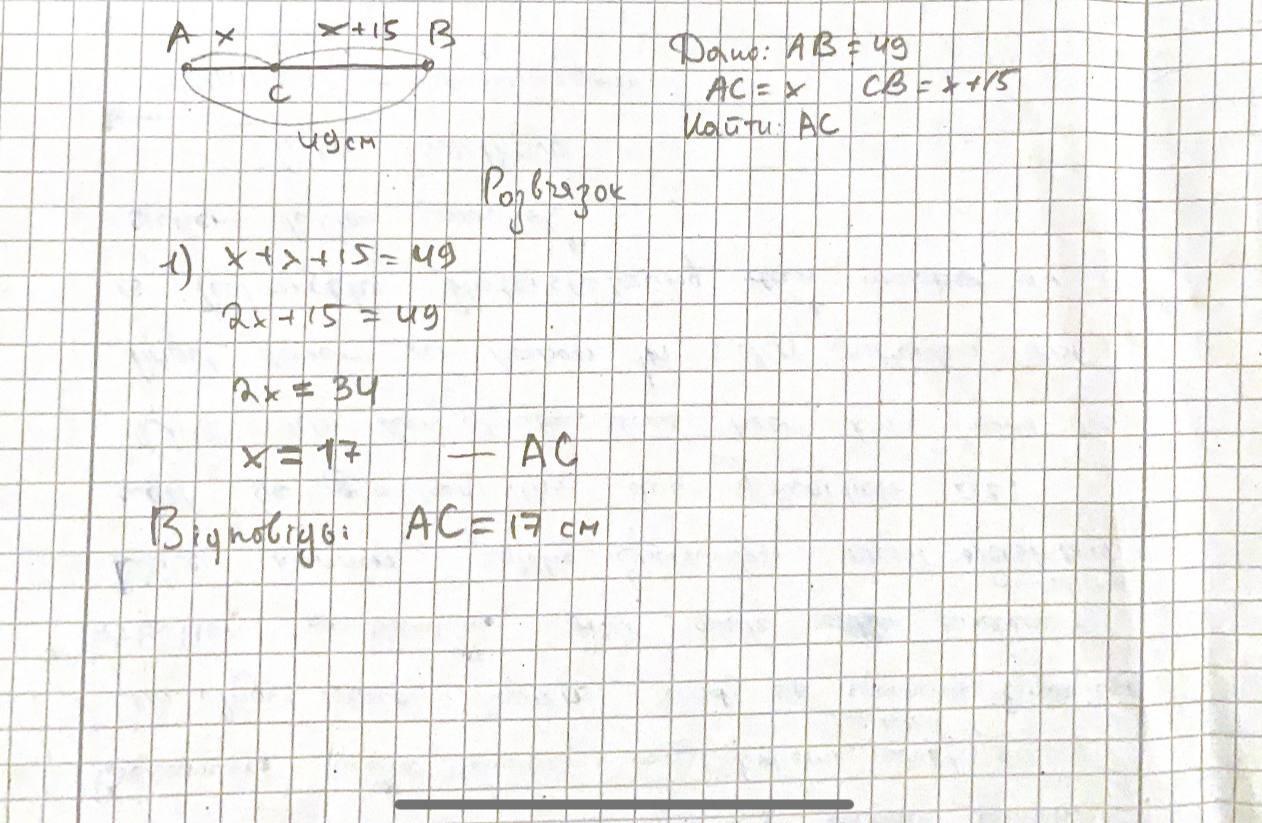 A x x+15 B
C
49см
Дано: AB = 49
AC = x CB = x+15
Найти: AC
Розвʼязок
1) x+x+15=49
2x+15=49
2x=34
x=17 — AC
Відповідь: AC=17 см